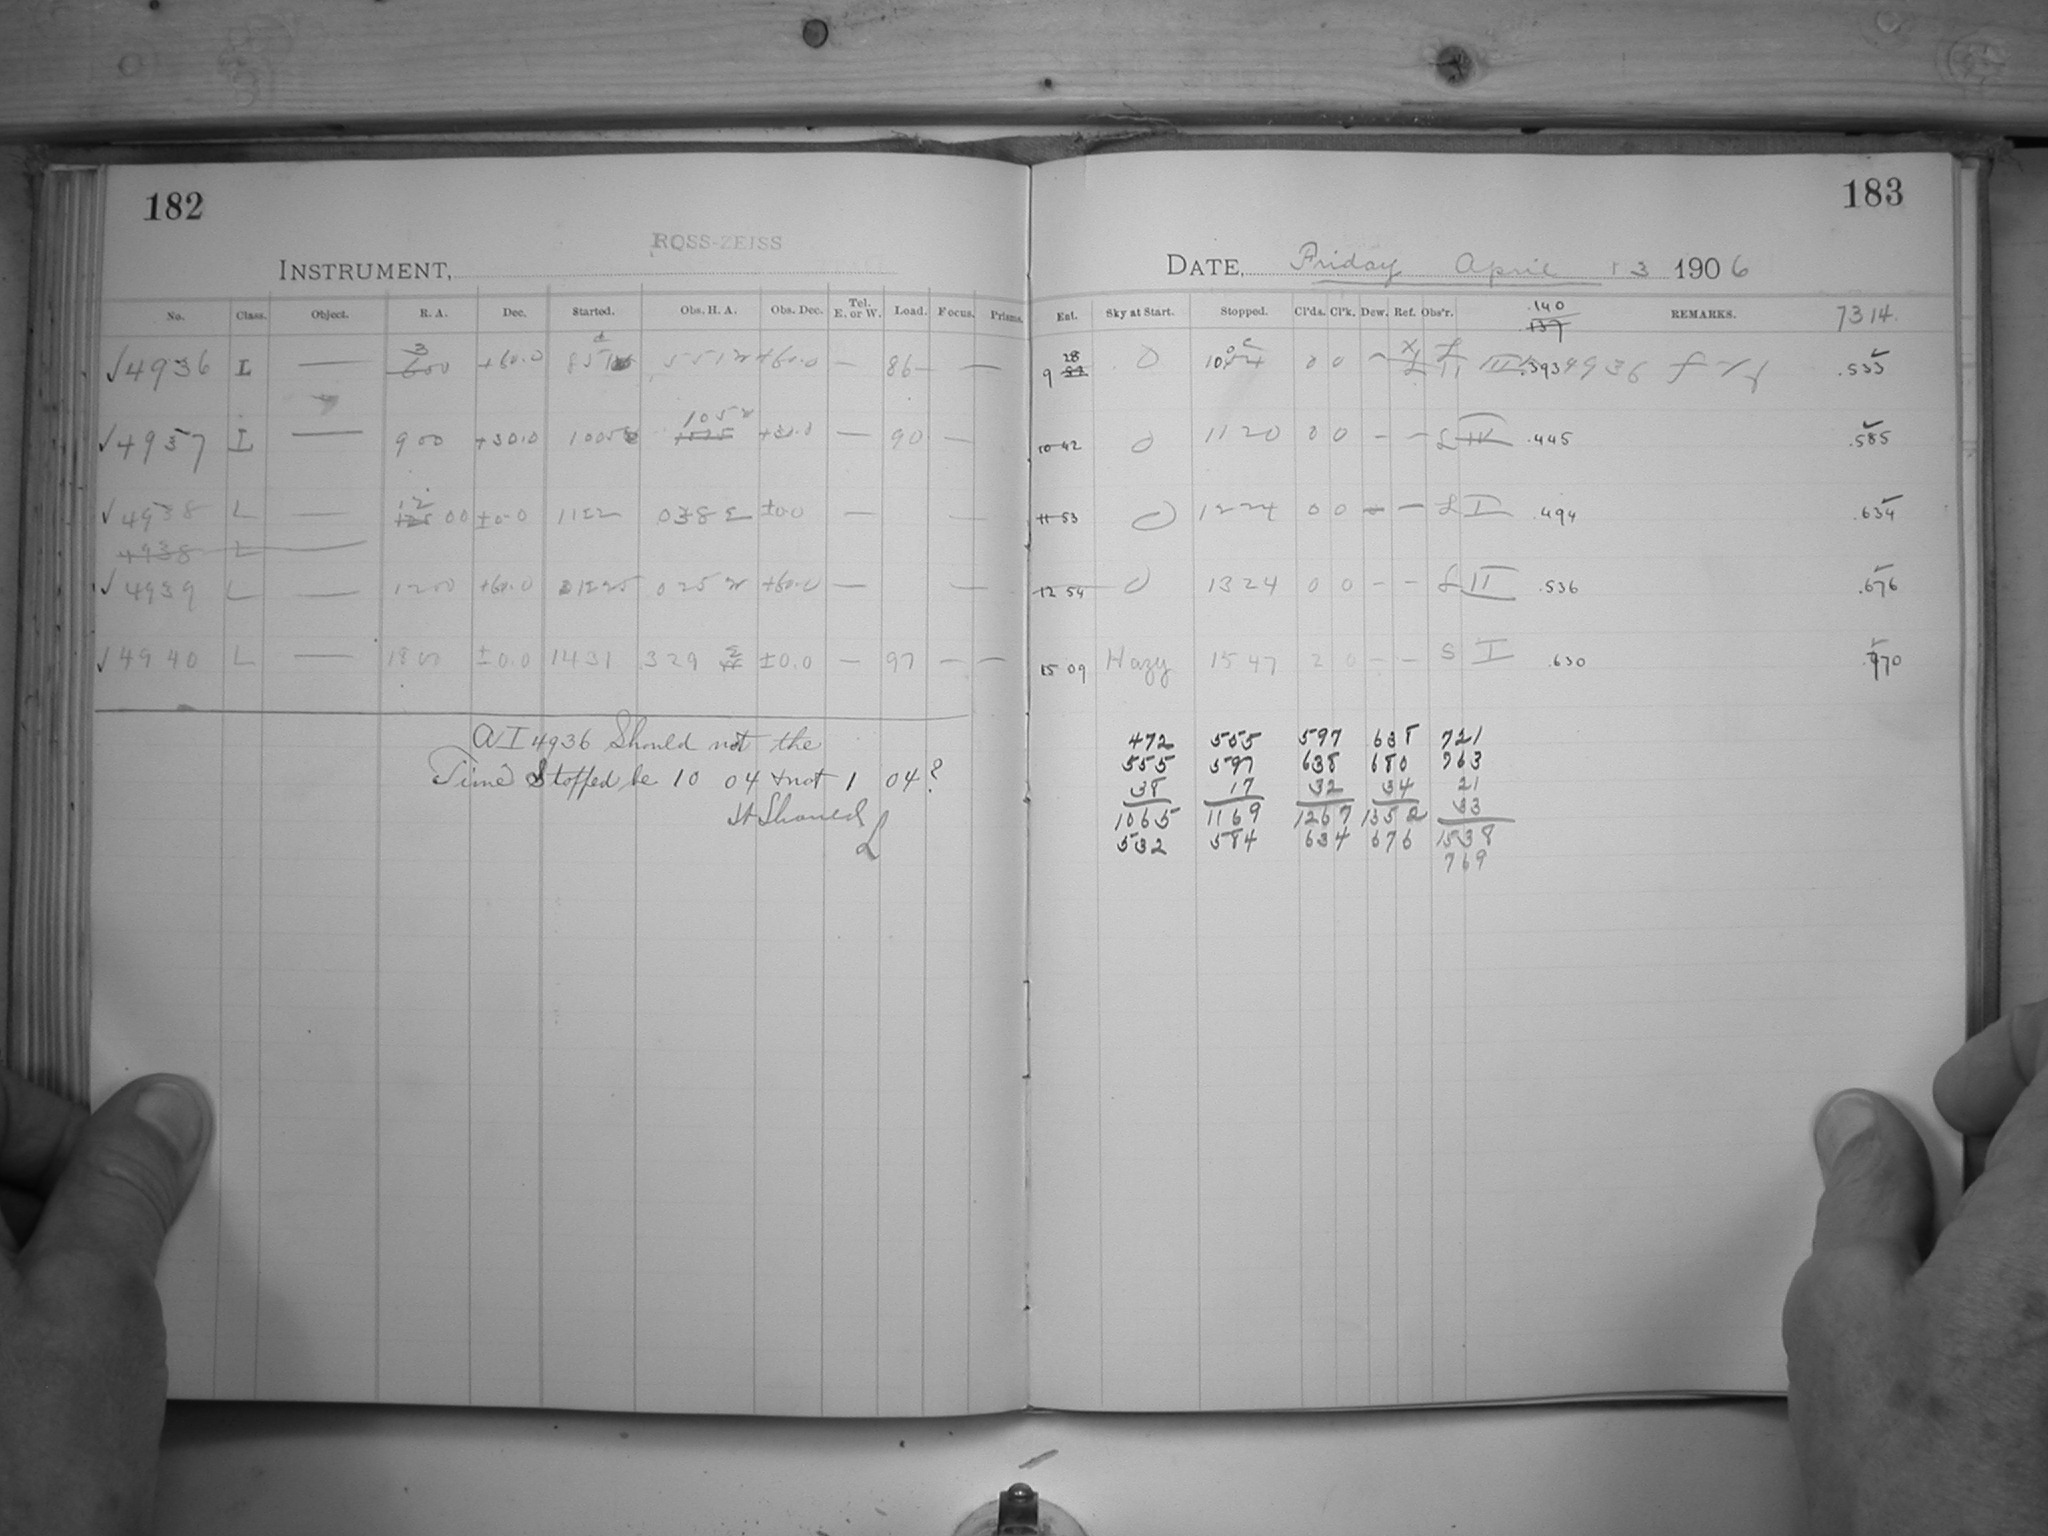 182
183
ROSS-ZEISS
INSTRUMENT,
DATE, Friday April 13 1906
No. Class. Object. R. A. Dec. Started. Obs. H. A. Obs. Dec. Tel. E. or W. Load. Focus. Prisms.
Ext. Sky at Start. Stopped. Cl'ds. Cl'k. Dew. Ref. Obs'r. .140 137 REMARKS. 7314
√4936 L — 3 600 +60.0 551 W +60.0 — 86 — —
9 28 0 0 0 — .393 4936 .533
√4937 L — 900 +30.0 1005 1052 +30.0 — 90 —
10 42 0 1120 0 0 – – L IV .445 .585
√4938 L — 12 00 ±0.0 1152 038 E ±0.0 — —
11 53 0 1224 0 0 – – L I .494 .634
4938 L
√4939 L — 1200 +60.0 1225 025 W +60.0 — —
12 54 0 1324 0 0 – – L II .536 .676
√4940 L — 1800 ±0.0 1431 329 E ±0.0 — 97 — —
15 09 Hazy 1547 2 0 – – S I .630 .770
AI 4936 Should not the
Time Stopped be 10 04 & not 1 04?
It Should
L
472 555 597 638 721
555 597 638 680 763
38 17 32 34 21
33
1065 1169 1267 1352 1538
532 584 634 676 769